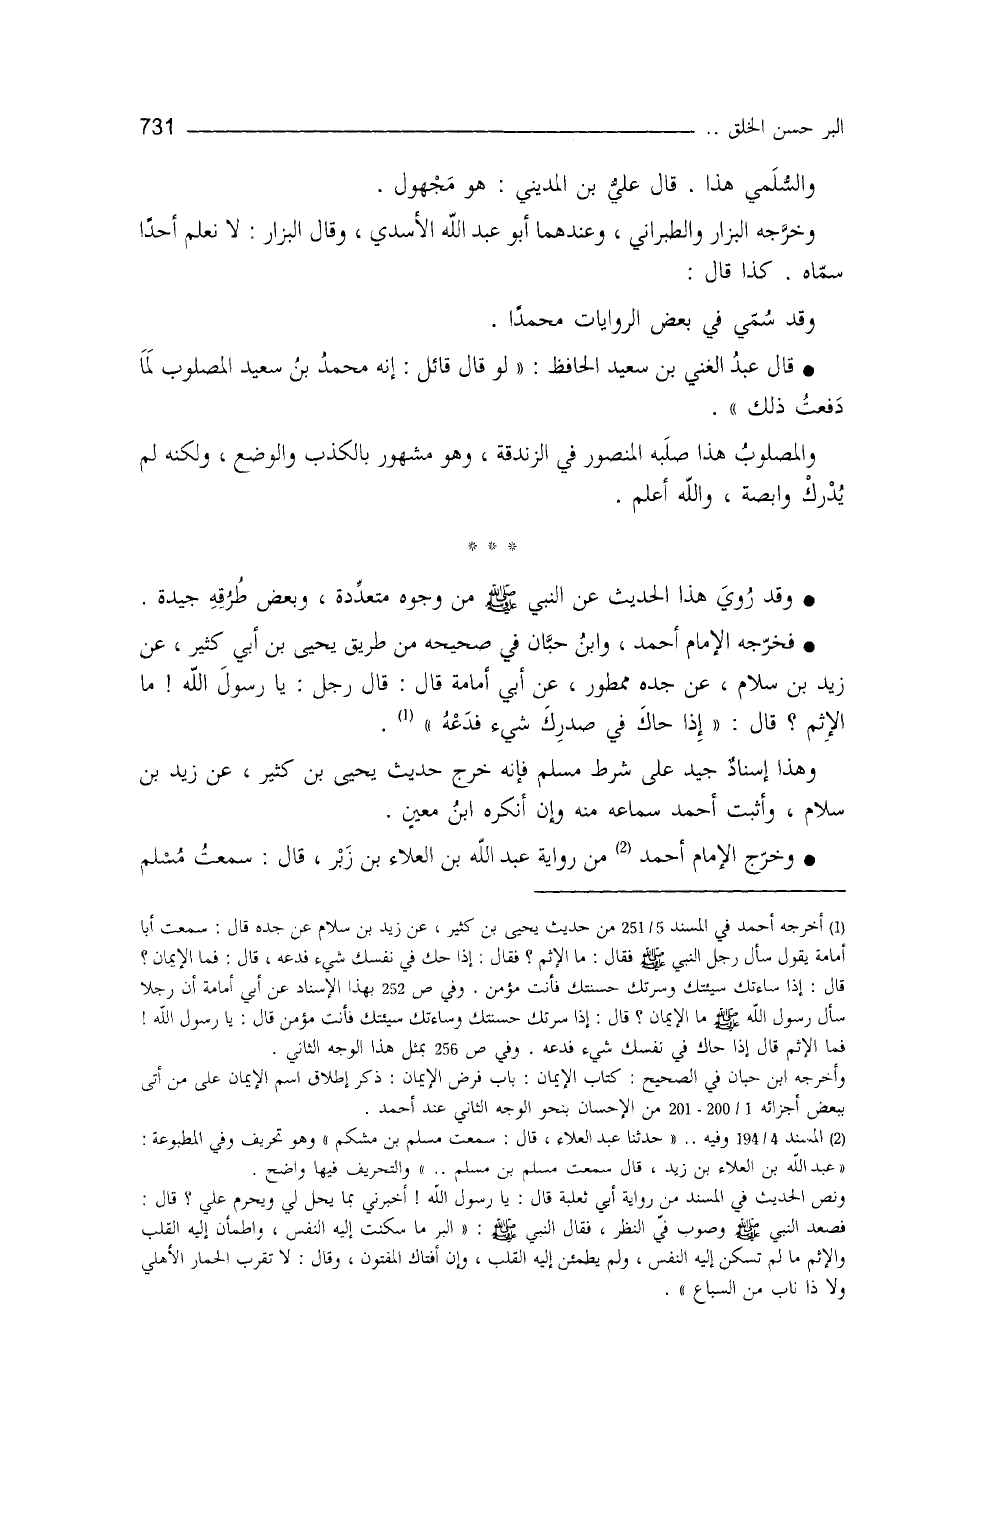 البر حسن الخلق .. 731
والسُّلَمي هذا . قال عليُّ بن المديني : هو مَجْهول .
وخرَّجه البزار والطبراني ، وعندهما أبو عبد اللّه الأسدي ، وقال البزار : لا نعلم أحدًا
سمّاه . كذا قال :
وقد سُمّي في بعض الروايات محمدًا .
● قال عبدُ الغني بن سعيد الحافظ : « لو قال قائل : إنه محمدُ بنُ سعيد المصلوب لَمَا
دَفعتُ ذلك » .
والمصلوبُ هذا صلَبه المنصور في الزندقة ، وهو مشهور بالكذب والوضع ، ولكنه لم
يُدْركْ وابصة ، واللّه أعلم .
* * *
● وقد رُويَ هذا الحديث عن النبي ﷺ من وجوه متعدِّدة ، وبعض طُرُقِهِ جيدة .
● فخرّجه الإمام أحمد ، وابنُ حبَّان في صحيحه من طريق يحيى بن أبي كثير ، عن
زيد بن سلام ، عن جده ممطور ، عن أبي أمامة قال : قال رجل : يا رسولَ اللّه ! ما
الإثم ؟ قال : « إِذا حاكَ في صدرِكَ شيء فدَعْهُ » (1) .
وهذا إسنادٌ جيد على شرط مسلم فإنه خرج حديث يحيى بن كثير ، عن زيد بن
سلام ، وأثبت أحمد سماعه منه وإن أنكره ابنُ معينٍ .
● وخرّج الإمام أحمد (2) من رواية عبد اللّه بن العلاء بن زَبْر ، قال : سمعتُ مُسْلم
(1) أخرجه أحمد في المسند 5/251 من حديث يحيى بن كثير ، عن زيد بن سلام عن جده قال : سمعت أبا
أمامة يقول سأل رجل النبي ﷺ فقال : ما الإثم ؟ فقال : إذا حك في نفسك شيء فدعه ، قال : فما الإيمان ؟
قال : إذا ساءتك سيئتك وسرتك حسنتك فأنت مؤمن . وفي ص 252 بهذا الإسناد عن أبي أمامة أن رجلا
سأل رسول اللّه ﷺ ما الإيمان ؟ قال : إذا سرتك حسنتك وساءتك سيئتك فأنت مؤمن قال : يا رسول اللّه !
فما الإثم قال إذا حاك في نفسك شيء فدعه . وفي ص 256 بمثل هذا الوجه الثاني .
وأخرجه ابن حبان في الصحيح : كتاب الإيمان : باب فرض الإيمان : ذكر إطلاق اسم الإيمان على من أتى
ببعض أجزائه 1 / 200 - 201 من الإحسان بنحو الوجه الثاني عند أحمد .
(2) المسند 4/194 وفيه .. « حدثنا عبد العلاء ، قال : سمعت مسلم بن مشكم » وهو تحريف وفي المطبوعة :
« عبد اللّه بن العلاء بن زيد ، قال سمعت مسلم بن مسلم .. » والتحريف فيها واضح .
ونص الحديث في المسند من رواية أبي ثعلبة قال : يا رسول اللّه ! أخبرني بما يحل لي ويحرم علي ؟ قال :
فصعد النبي ﷺ وصوب فيّ النظر ، فقال النبي ﷺ : « البر ما سكنت إليه النفس ، واطمأن إليه القلب
والإثم ما لم تسكن إليه النفس ، ولم يطمئن إليه القلب ، وإن أفتاك المفتون ، وقال : لا تقرب الحمار الأهلي
ولا ذا ناب من السباع » .